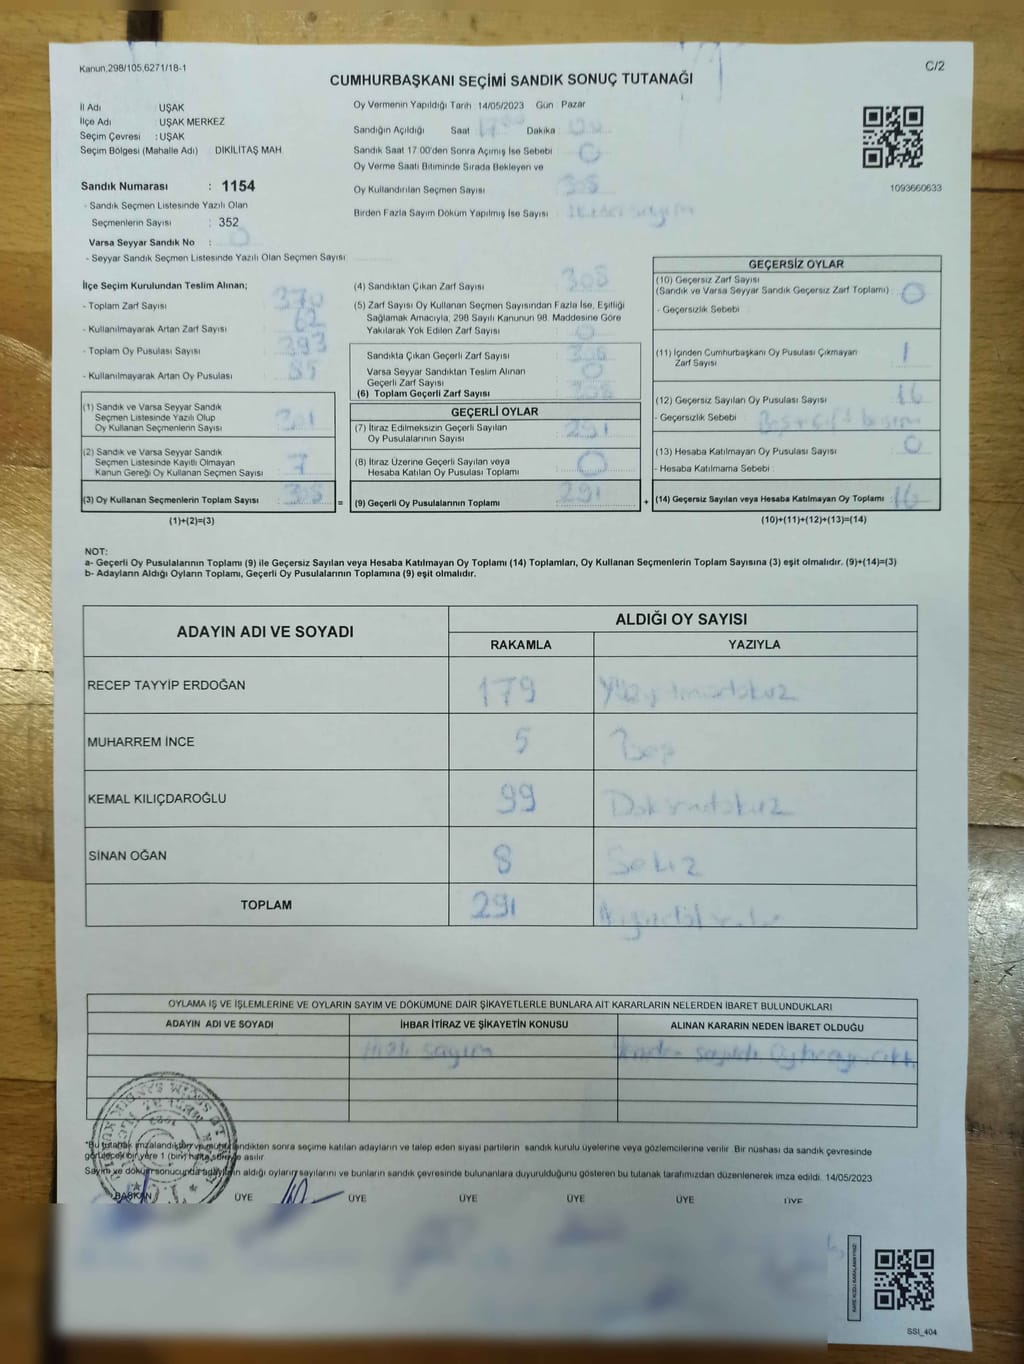 Kanun,298/105,6271/18-1
C/2
CUMHURBAŞKANI SEÇİMİ SANDIK SONUÇ TUTANAĞI
İl Adı UŞAK
İlçe Adı UŞAK MERKEZ
Seçim Çevresi : UŞAK
Seçim Bölgesi (Mahalle Adı) DİKİLİTAŞ MAH
Sandık Numarası : 1154
- Sandık Seçmen Listesinde Yazılı Olan
Seçmenlerin Sayısı : 352
Varsa Seyyar Sandık No : 0
- Seyyar Sandık Seçmen Listesinde Yazılı Olan Seçmen Sayısı
Oy Vermenin Yapıldığı Tarih 14/05/2023 Gün Pazar
Sandığın Açıldığı Saat Dakika
Sandık Saat 17 00'den Sonra Açımış İse Sebebi 0
Oy Verme Saati Bitiminde Sırada Bekleyen ve
Oy Kullandırılan Seçmen Sayısı 308
Birden Fazla Sayım Döküm Yapılmış İse Sayısı
1093660633
İlçe Seçim Kurulundan Teslim Alınan;
- Toplam Zarf Sayısı 370
- Kullanılmayarak Artan Zarf Sayısı 62
- Toplam Oy Pusulası Sayısı 393
- Kullanılmayarak Artan Oy Pusulası 85
(1) Sandık ve Varsa Seyyar Sandık
Seçmen Listesinde Yazılı Olup
Oy Kullanan Seçmenlerin Sayısı 301
(2) Sandık ve Varsa Seyyar Sandık
Seçmen Listesinde Kayıtlı Olmayan
Kanun Gereği Oy Kullanan Seçmen Sayısı 7
(3) Oy Kullanan Seçmenlerin Toplam Sayısı 308 =
(1)+(2)=(3)
(4) Sandıktan Çıkan Zarf Sayısı 308
(5) Zarf Sayısı Oy Kullanan Seçmen Sayısından Fazla İse, Eşitliği
Sağlamak Amacıyla, 298 Sayılı Kanunun 98. Maddesine Göre
Yakılarak Yok Edilen Zarf Sayısı 0
Sandıkta Çıkan Geçerli Zarf Sayısı 308
Varsa Seyyar Sandıktan Teslim Alınan
Geçerli Zarf Sayısı 0
(6) Toplam Geçerli Zarf Sayısı 308
GEÇERLİ OYLAR
(7) İtiraz Edilmeksizin Geçerli Sayılan
Oy Pusulalarının Sayısı 291
(8) İtiraz Üzerine Geçerli Sayılan veya
Hesaba Katılan Oy Pusulası Toplamı 0
(9) Geçerli Oy Pusulalarının Toplamı 291 +
GEÇERSİZ OYLAR
(10) Geçersiz Zarf Sayısı
(Sandık ve Varsa Seyyar Sandık Geçersiz Zarf Toplamı) 0
- Geçersizlik Sebebi
(11) İçinden Cumhurbaşkanı Oy Pusulası Çıkmayan
Zarf Sayısı 1
(12) Geçersiz Sayılan Oy Pusulası Sayısı 16
- Geçersizlik Sebebi
(13) Hesaba Katılmayan Oy Pusulası Sayısı 0
- Hesaba Katılmama Sebebi
(14) Geçersiz Sayılan veya Hesaba Katılmayan Oy Toplamı 16
(10)+(11)+(12)+(13)=(14)
NOT:
a- Geçerli Oy Pusulalarının Toplamı (9) ile Geçersiz Sayılan veya Hesaba Katılmayan Oy Toplamı (14) Toplamları, Oy Kullanan Seçmenlerin Toplam Sayısına (3) eşit olmalıdır. (9)+(14)=(3)
b- Adayların Aldığı Oyların Toplamı, Geçerli Oy Pusulalarının Toplamına (9) eşit olmalıdır.
ADAYIN ADI VE SOYADI
ALDIĞI OY SAYISI
RAKAMLA YAZIYLA
RECEP TAYYİP ERDOĞAN 179 Yüzyetmişdokuz
MUHARREM İNCE 5 Beş
KEMAL KILIÇDAROĞLU 99 Doksandokuz
SİNAN OĞAN 8 Sekiz
TOPLAM 291
OYLAMA İŞ VE İŞLEMLERİNE VE OYLARIN SAYIM VE DÖKÜMÜNE DAİR ŞİKAYETLERLE BUNLARA AİT KARARLARIN NELERDEN İBARET BULUNDUKLARI
ADAYIN ADI VE SOYADI İHBAR İTİRAZ VE ŞİKAYETİN KONUSU ALINAN KARARIN NEDEN İBARET OLDUĞU
Hızlı sayım
"Bu tutanak imzalandıktan ve mühürlendikten sonra seçime katılan adayların ve talep eden siyasi partilerin sandık kurulu üyelerine veya gözlemcilerine verilir. Bir nüshası da sandık çevresinde
görülecek bir yere 1 (bir) hafta süreyle asılır.
Sayım ve döküm sonucunda adayların aldığı oyların sayılarını ve bunların sandık çevresinde bulunanlara duyurulduğunu gösteren bu tutanak tarafımızdan düzenlenerek imza edildi. 14/05/2023
BAŞKAN ÜYE ÜYE ÜYE ÜYE ÜYE ÜYE
SSİ_404